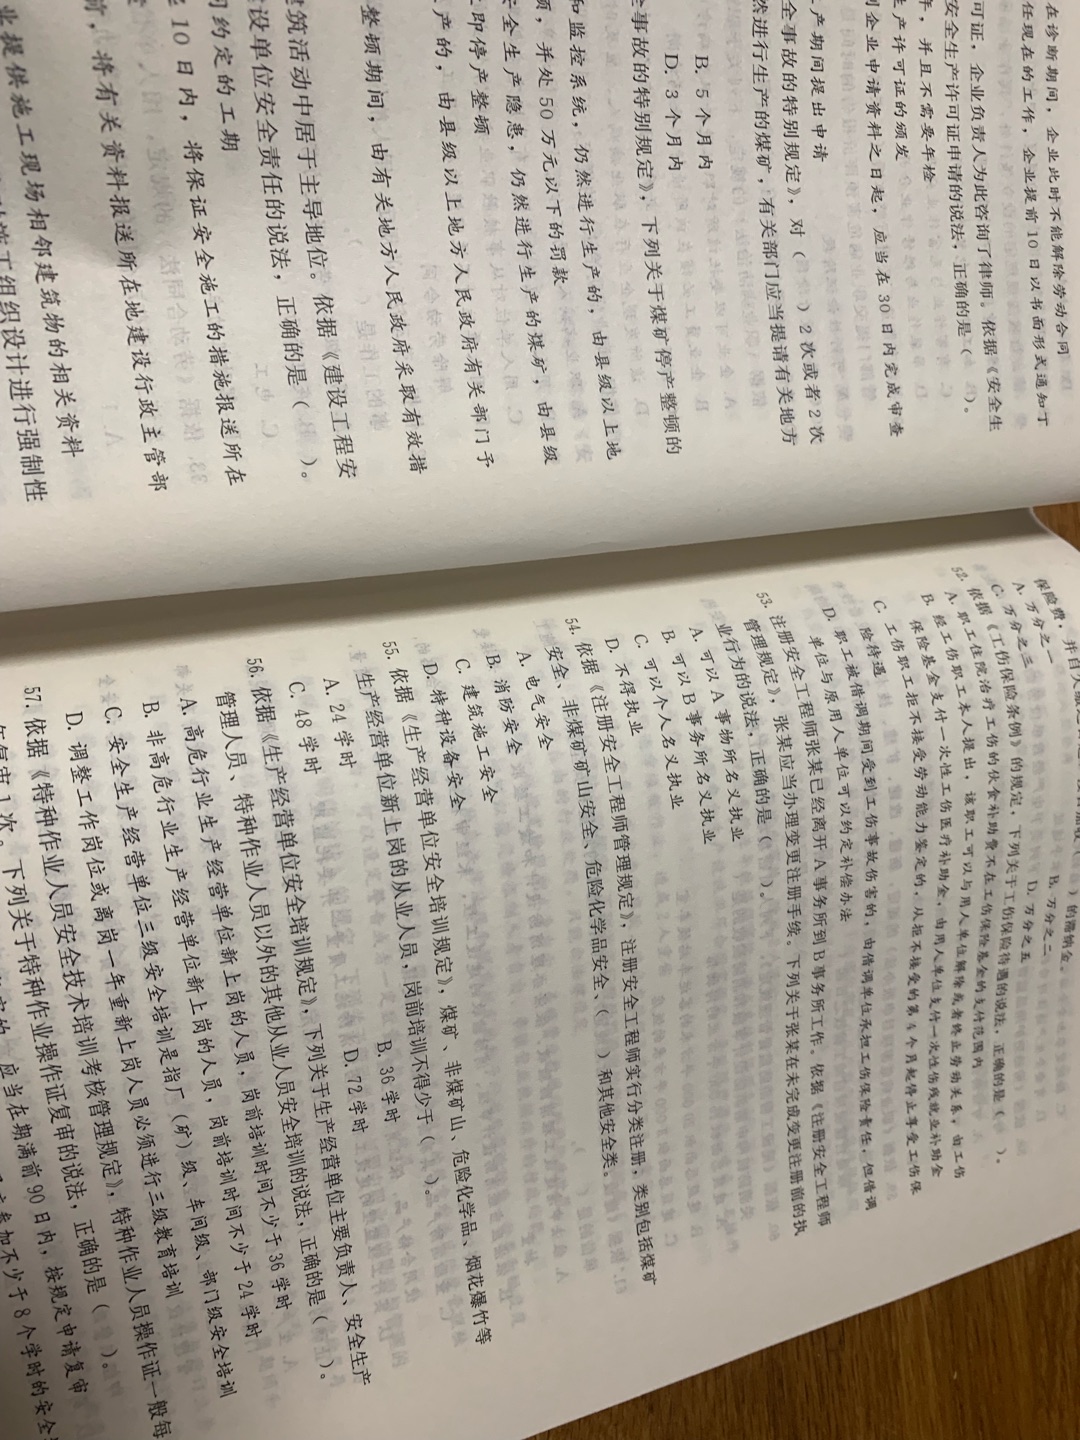 在诊断期间，企业此时不能解除劳动合同
任现在的工作，企业提前10日以书面形式通知丁
可证，企业负责人为此咨询了律师。依据《安全生
安全生产许可证申请的说法，正确的是（ ）。
年，并且不需要年检
生产许可证的颁发
到企业申请资料之日起，应当在30日内完成审查
产期间提出申请
全事故的特别规定》，对（ ）2次或者2次
然进行生产的煤矿，有关部门应当提请有关地方
B. 5个月内
D. 3个月内
全事故的特别规定》，下列关于煤矿停产整顿的
和监控系统，仍然进行生产的，由县级以上地
顿，并处50万元以下的罚款
安全生产隐患，仍然进行生产的煤矿，由县级
立即停产整顿
产的，由县级以上地方人民政府有关部门予
整顿期间，由有关地方人民政府采取有效措
建筑活动中居于主导地位。依据《建设工程安
设单位安全责任的说法，正确的是（ ）。
约定的工期
10日内，将保证安全施工的措施报送所在
前，将有关资料报送所在地建设行政主管部
业提供施工现场相邻建筑物的相关资料
施工组织设计进行强制性
保险费，并自
）的滞纳金。
A. 万分之一 B. 万分之二
C. 万分之三 D. 万分之五
52. 依据《工伤保险条例》的规定，下列关于工伤保险待遇的说法，正确的是（ ）。
A. 职工住院治疗工伤的伙食补助费不在工伤保险基金的支付范围内
B. 经工伤职工本人提出，该职工可以与用人单位解除或者终止劳动关系，由工伤
保险基金支付一次性工伤医疗补助金，由用人单位支付一次性伤残就业补助金
C. 工伤职工拒不接受劳动能力鉴定的，从拒不接受的第4个月起停止享受工伤保
险待遇
D. 职工被借调期间受到工伤事故伤害的，由借调单位承担工伤保险责任，但借调
单位与原用人单位可以约定补偿办法
53. 注册安全工程师张某已经离开A事务所到B事务所工作。依据《注册安全工程师
管理规定》，张某应当办理变更注册手续。下列关于张某在未完成变更注册前的执
业行为的说法，正确的是（ ）。
A. 可以A事物所名义执业
B. 可以B事务所名义执业
C. 可以个人名义执业
D. 不得执业
54. 依据《注册安全工程师管理规定》，注册安全工程师实行分类注册，类别包括煤矿
安全、非煤矿矿山安全、危险化学品安全、（ ）和其他安全类。
A. 电气安全
B. 消防安全
C. 建筑施工安全
D. 特种设备安全
55. 依据《生产经营单位安全培训规定》，煤矿、非煤矿山、危险化学品、烟花爆竹等
生产经营单位新上岗的从业人员，岗前培训不得少于（ ）。
A. 24学时 B. 36学时
C. 48学时 D. 72学时
56. 依据《生产经营单位安全培训规定》，下列关于生产经营单位主要负责人、安全生产
管理人员、特种作业人员以外的其他从业人员安全培训的说法，正确的是（ ）。
A. 高危行业生产经营单位新上岗的人员，岗前培训时间不少于36学时
B. 非高危行业生产经营单位新上岗的人员，岗前培训时间不少于24学时
C. 安全生产经营单位三级安全培训是指厂（矿）级、车间级、部门级安全培训
D. 调整工作岗位或离岗一年重新上岗人员必须进行三级教育培训
57. 依据《特种作业人员安全技术培训考核管理规定》，特种作业人员操作证一般每
年复审1次。下列关于特种作业操作证复审的说法，正确的是（ ）。
应当在期满前90日内，按规定申请复审
参加不少于8个学时的安全